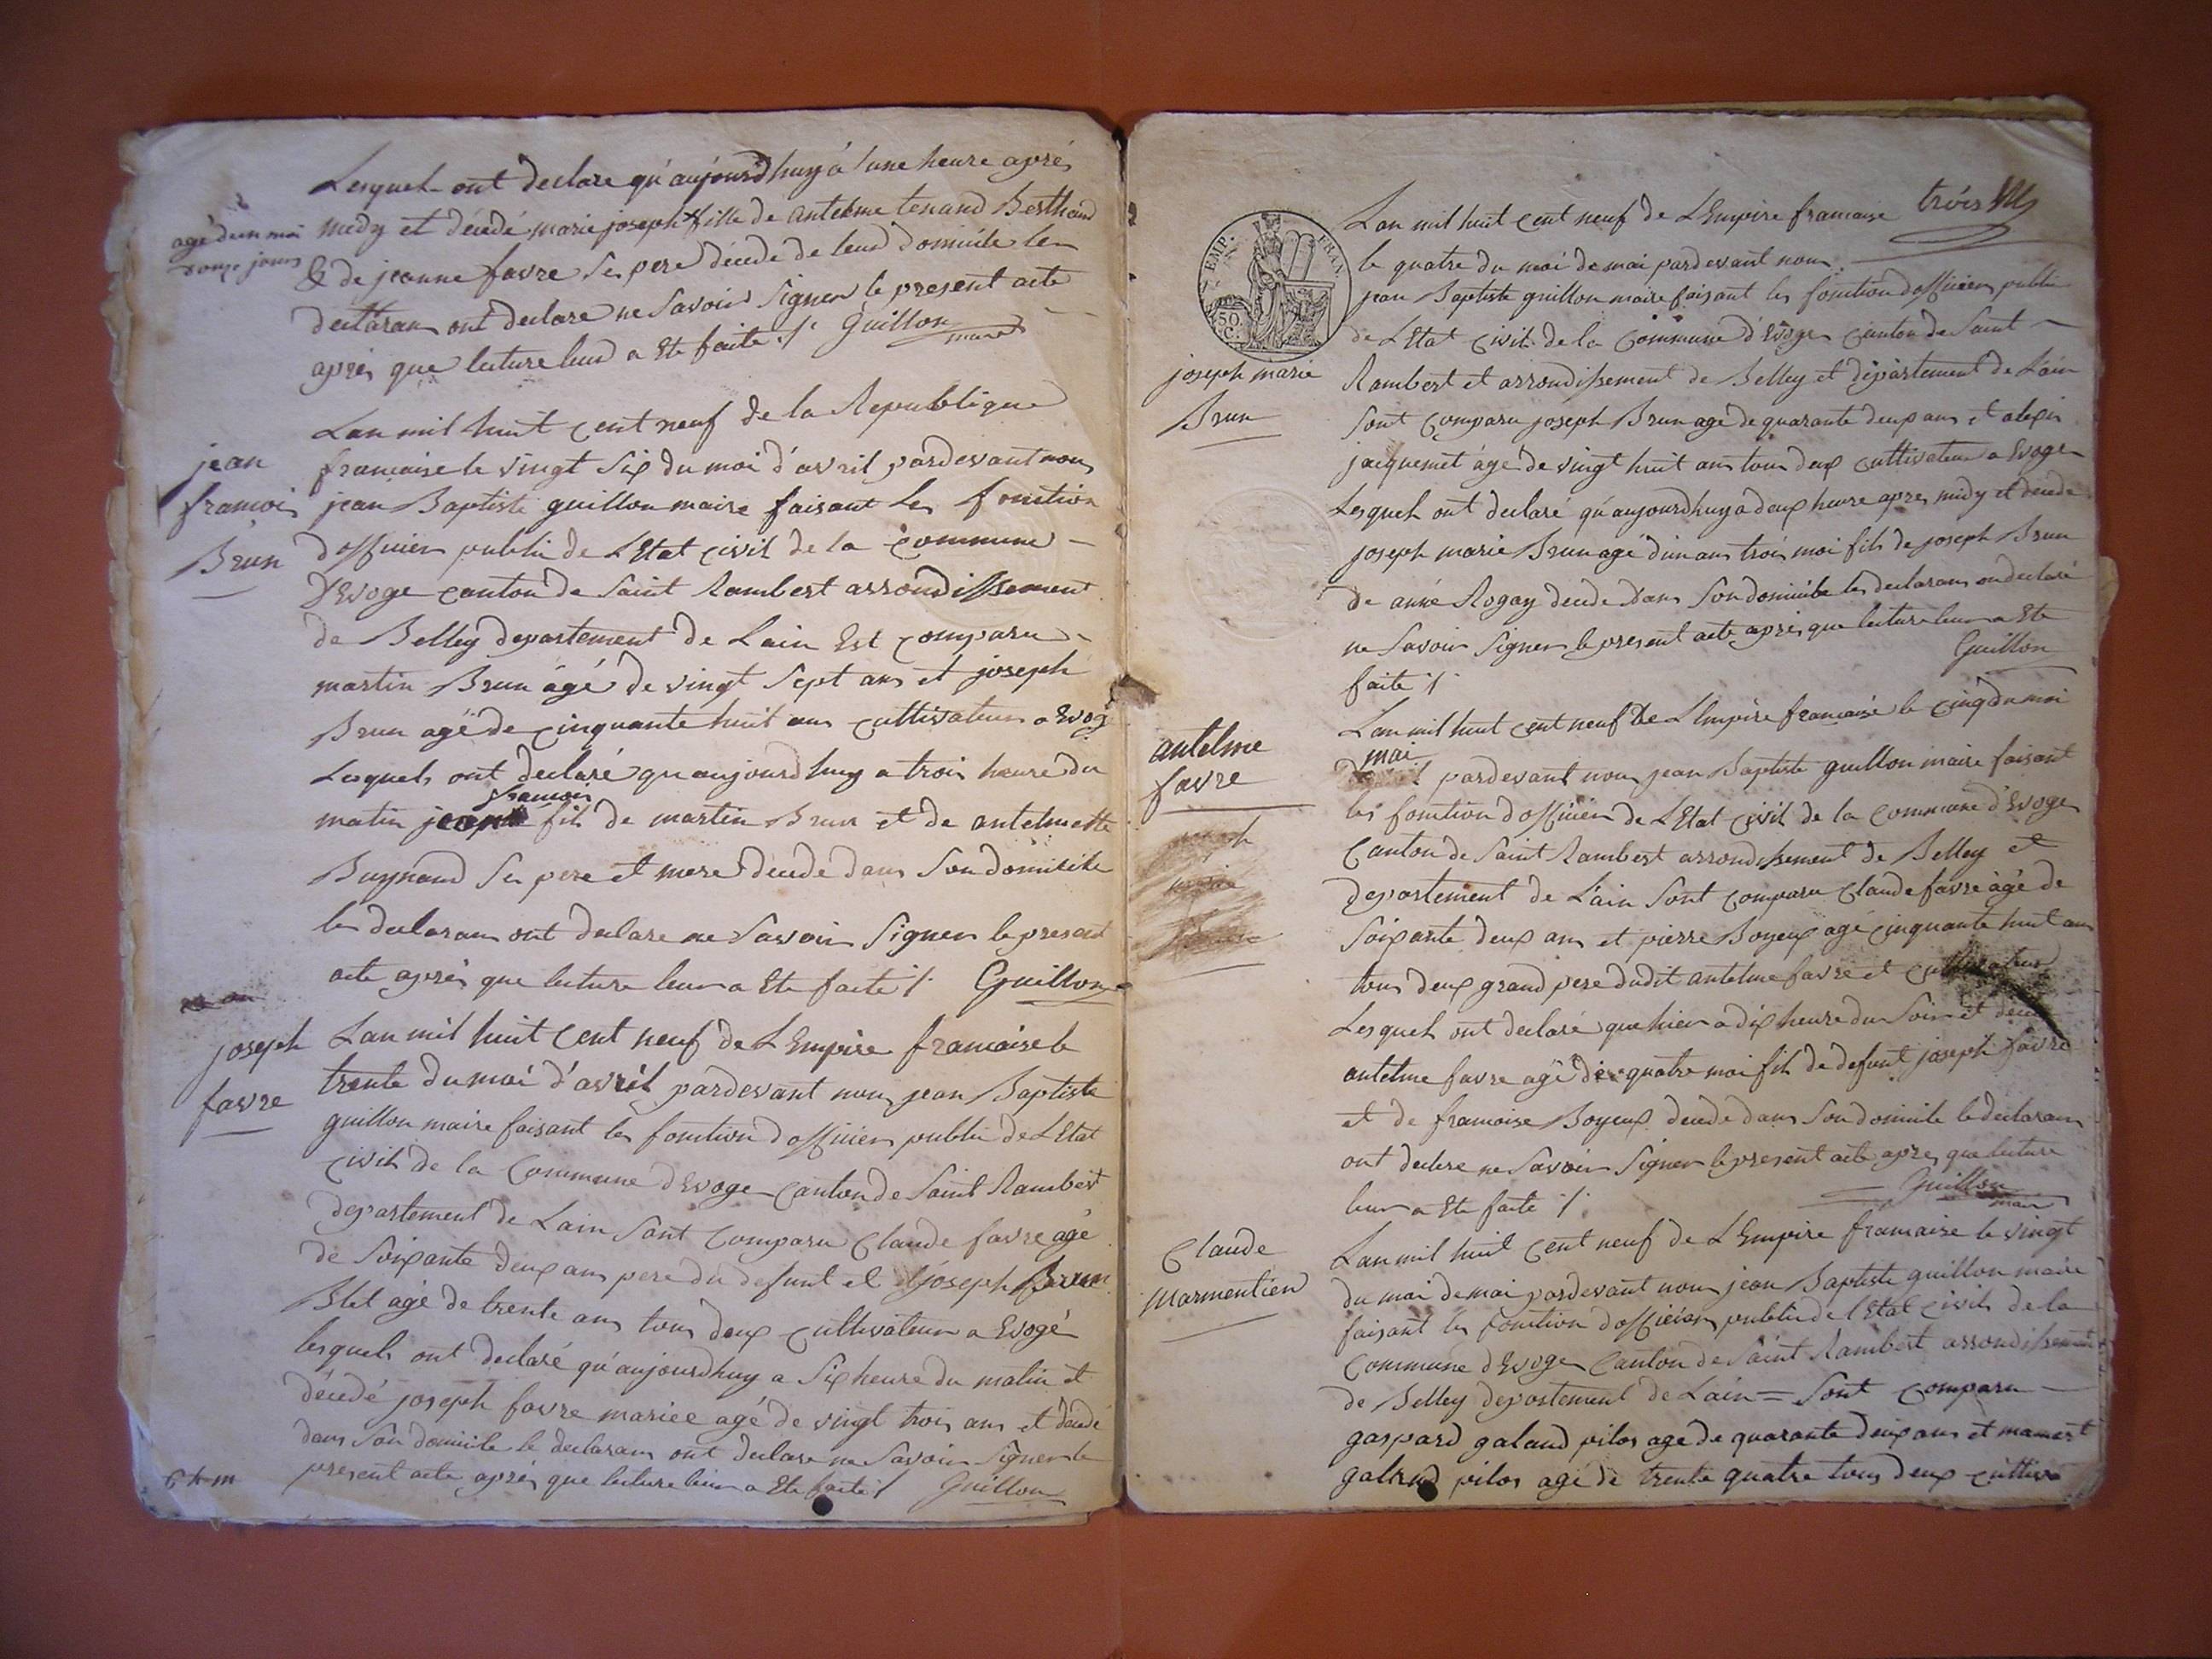 Lesquels ont declare qu'aujourdhuy à l'une heure aprés
midy et décédé marie joseph fille de antelme tenand Berthand
agé d'un moi
onze jours
& de jeanne favre ses pere décédé de leur domicile les
declarans ont declare ne Savoir Signer le present acte
aprés que lecture leur a Ete faite ./. Guillon
maire
jean
francois
Brun
Lan mil huit cent neuf de la Republique
francaise le vingt Six du moi d'avril pardevant nous
jean Baptiste guillon maire faisant les fonction
d'officier public de L'Etat civil de la commune
d'Evoge canton de Saint Rambert arrondissement
de Belley departement de Lain Est comparu
martin Brun âgé de vingt Sept ans et joseph
Brun agé de cinquante huit ans cultivateurs a Evoge
Lesquels ont declaré qu'aujourdhuy a trois heure du
francois
matin jean fils de martin Brun et de antelmette
Buynand Ses pere et mere décédé dans Son domicile
les declarans ont declare ne Savoir Signer le present
acte aprés que lecture leur a Ete faite ./. Guillon
joseph
favre
Lan mil huit cent neuf de L'Empire francaise le
trente du moi d'avril pardevant nous jean Baptiste
guillon maire faisant les fonction d'officier public de L'Etat
civil de la Commune d'Evoge Canton de Saint Rambert
departement de Lain Sont Comparu Claude favre agé
de Soixante deux ans pere du defunt et joseph Brun
Blet agé de trente ans tous deux cultivateur a Evogé
lesquels ont declaré qu'aujourdhuy a Six heure du matin et
décédé joseph favre mariée agé de vingt trois ans et décédé
dans Son domicile le declarans ont declare ne Savoir Signer le
present acte aprés que lecture leur a Ete faite ./ Guillon
trois
EMP. FRAN.
50
C.
joseph marie
Brun
Lan mil huit cent neuf de L'Empire francaise
le quatre du moi de mai pardevant nous
jean Baptiste guillon maire faisant les fonction d'officier public
de L'Etat civil de la Commune d'Evoge Canton de Saint
Rambert et arrondissement de Belley et département de Lain
Sont Comparu joseph Brun agé de quarante deux ans et alexis
jacquemet agé de vingt huit ans tous deux cultivateur a Evoge
Lesquels ont declaré qu'aujourdhuy a deux heure apres midy et décédé
joseph marie Brun agé d'un ans trois moi fils de joseph Brun
de anné Rogay décédé dans Son domicile les declarans on declaré
ne Savoir Signer le present acte aprés que lecture leur a Ete
faite ./.
Guillon
antelme
favre
Lan mil huit cent neuf de L'Empire francaise le cinq du moi
mai
pardevant nous jean Baptiste guillon maire faisant
les fonction d'officier de L'Etat civil de la Commune d'Evoge
Canton de Saint Rambert arrondissement de Belley et
departement de L'ain Sont comparu Claude favre agé de
Soixante deux ans et pierre Boyeux agé cinquante huit ans
tous deux grand pere dudit antelme favre et cultivateur
Lesquels ont declaré que hier a dix heure du Soir et décédé
antelme favre agé de quatre moi fils de defunt joseph favre
et de francoise Boyeux décédé dans Son domicile le declarans
ont declare ne Savoir Signer le present acte apres que lecture
leur a Ete faite ./.
Guillon
maire
Claude
Marmentien
Lan mil huit cent neuf de L'Empire francaise le vingt
du moi de mai pardevant nous jean Baptiste guillon maire
faisant les fonction d'officier public de L'Etat civil de la
Commune d'Evoge Canton de Saint Rambert arrondissement
de Belley departement de Lain = Sont comparu
gaspard galand pilos agé de quarante deux ans et mamert
galand pilos agé de trente quatre tous deux cultiva